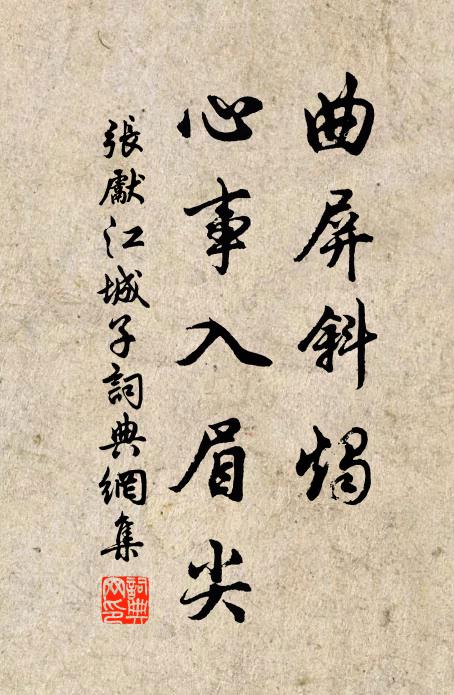 曲屏斜燭
心事入眉尖
張獻江城子詞典網集
詞典網印